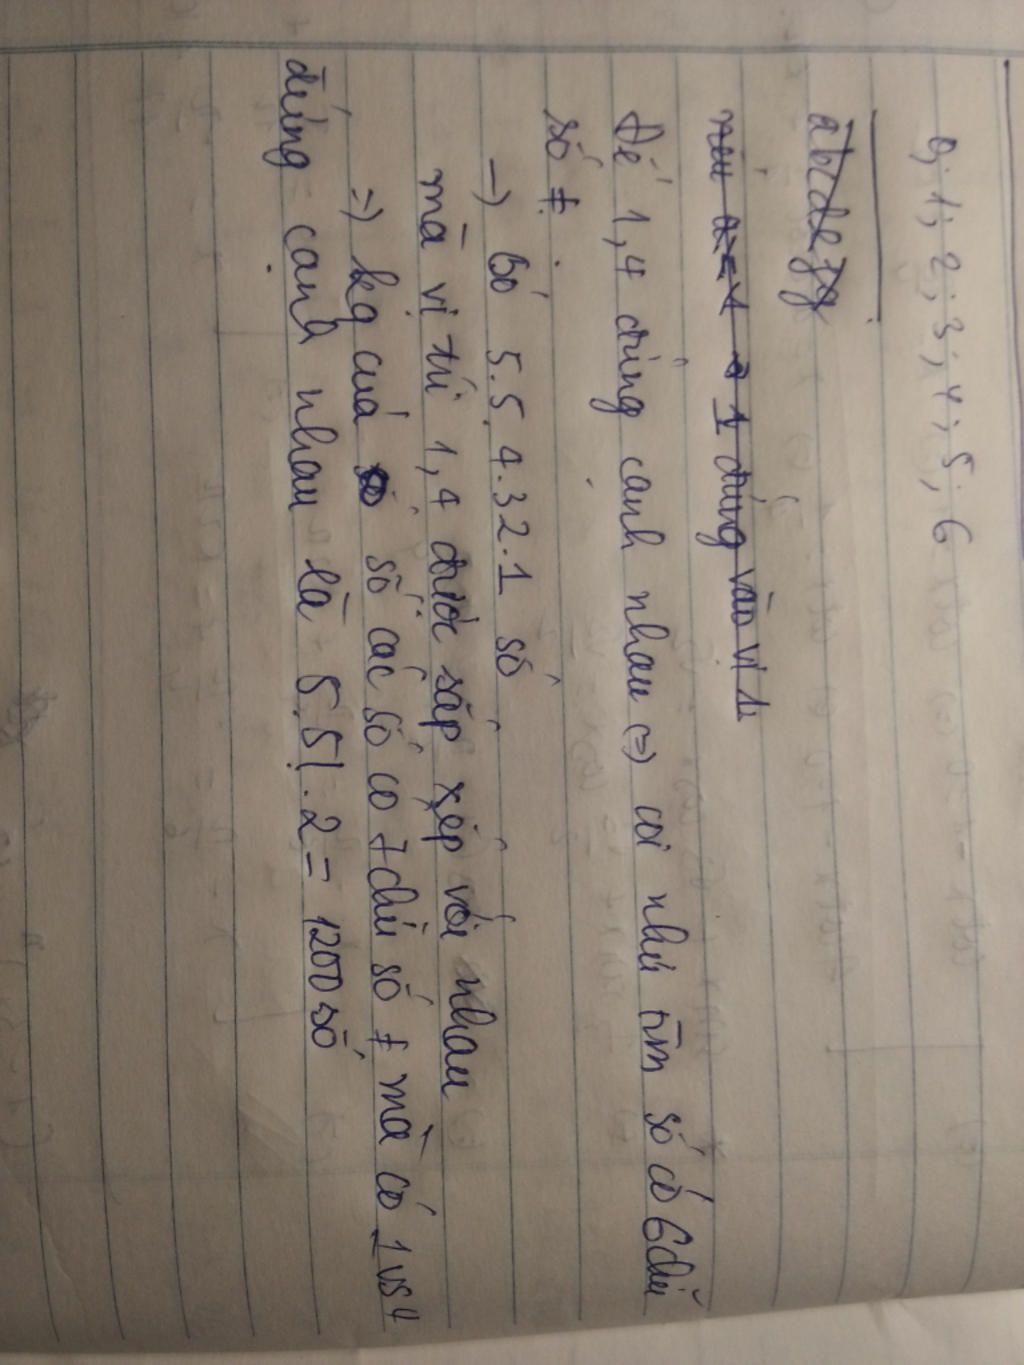 0; 1; 2; 3; 4; 5; 6
abcdefg
nếu a = 1 → 1 đứng vào vị
Để 1, 4 đứng cạnh nhau (=) coi như tìm số có 6 chữ
số ≠
→ Có 5.5.4.3.2.1 số
mà vị trí 1, 4 được sắp xếp với nhau
=) kq của số các số có 7 chữ số ≠ mà có 1 vs 4
đứng cạnh nhau là 5.5!.2 = 1200 số